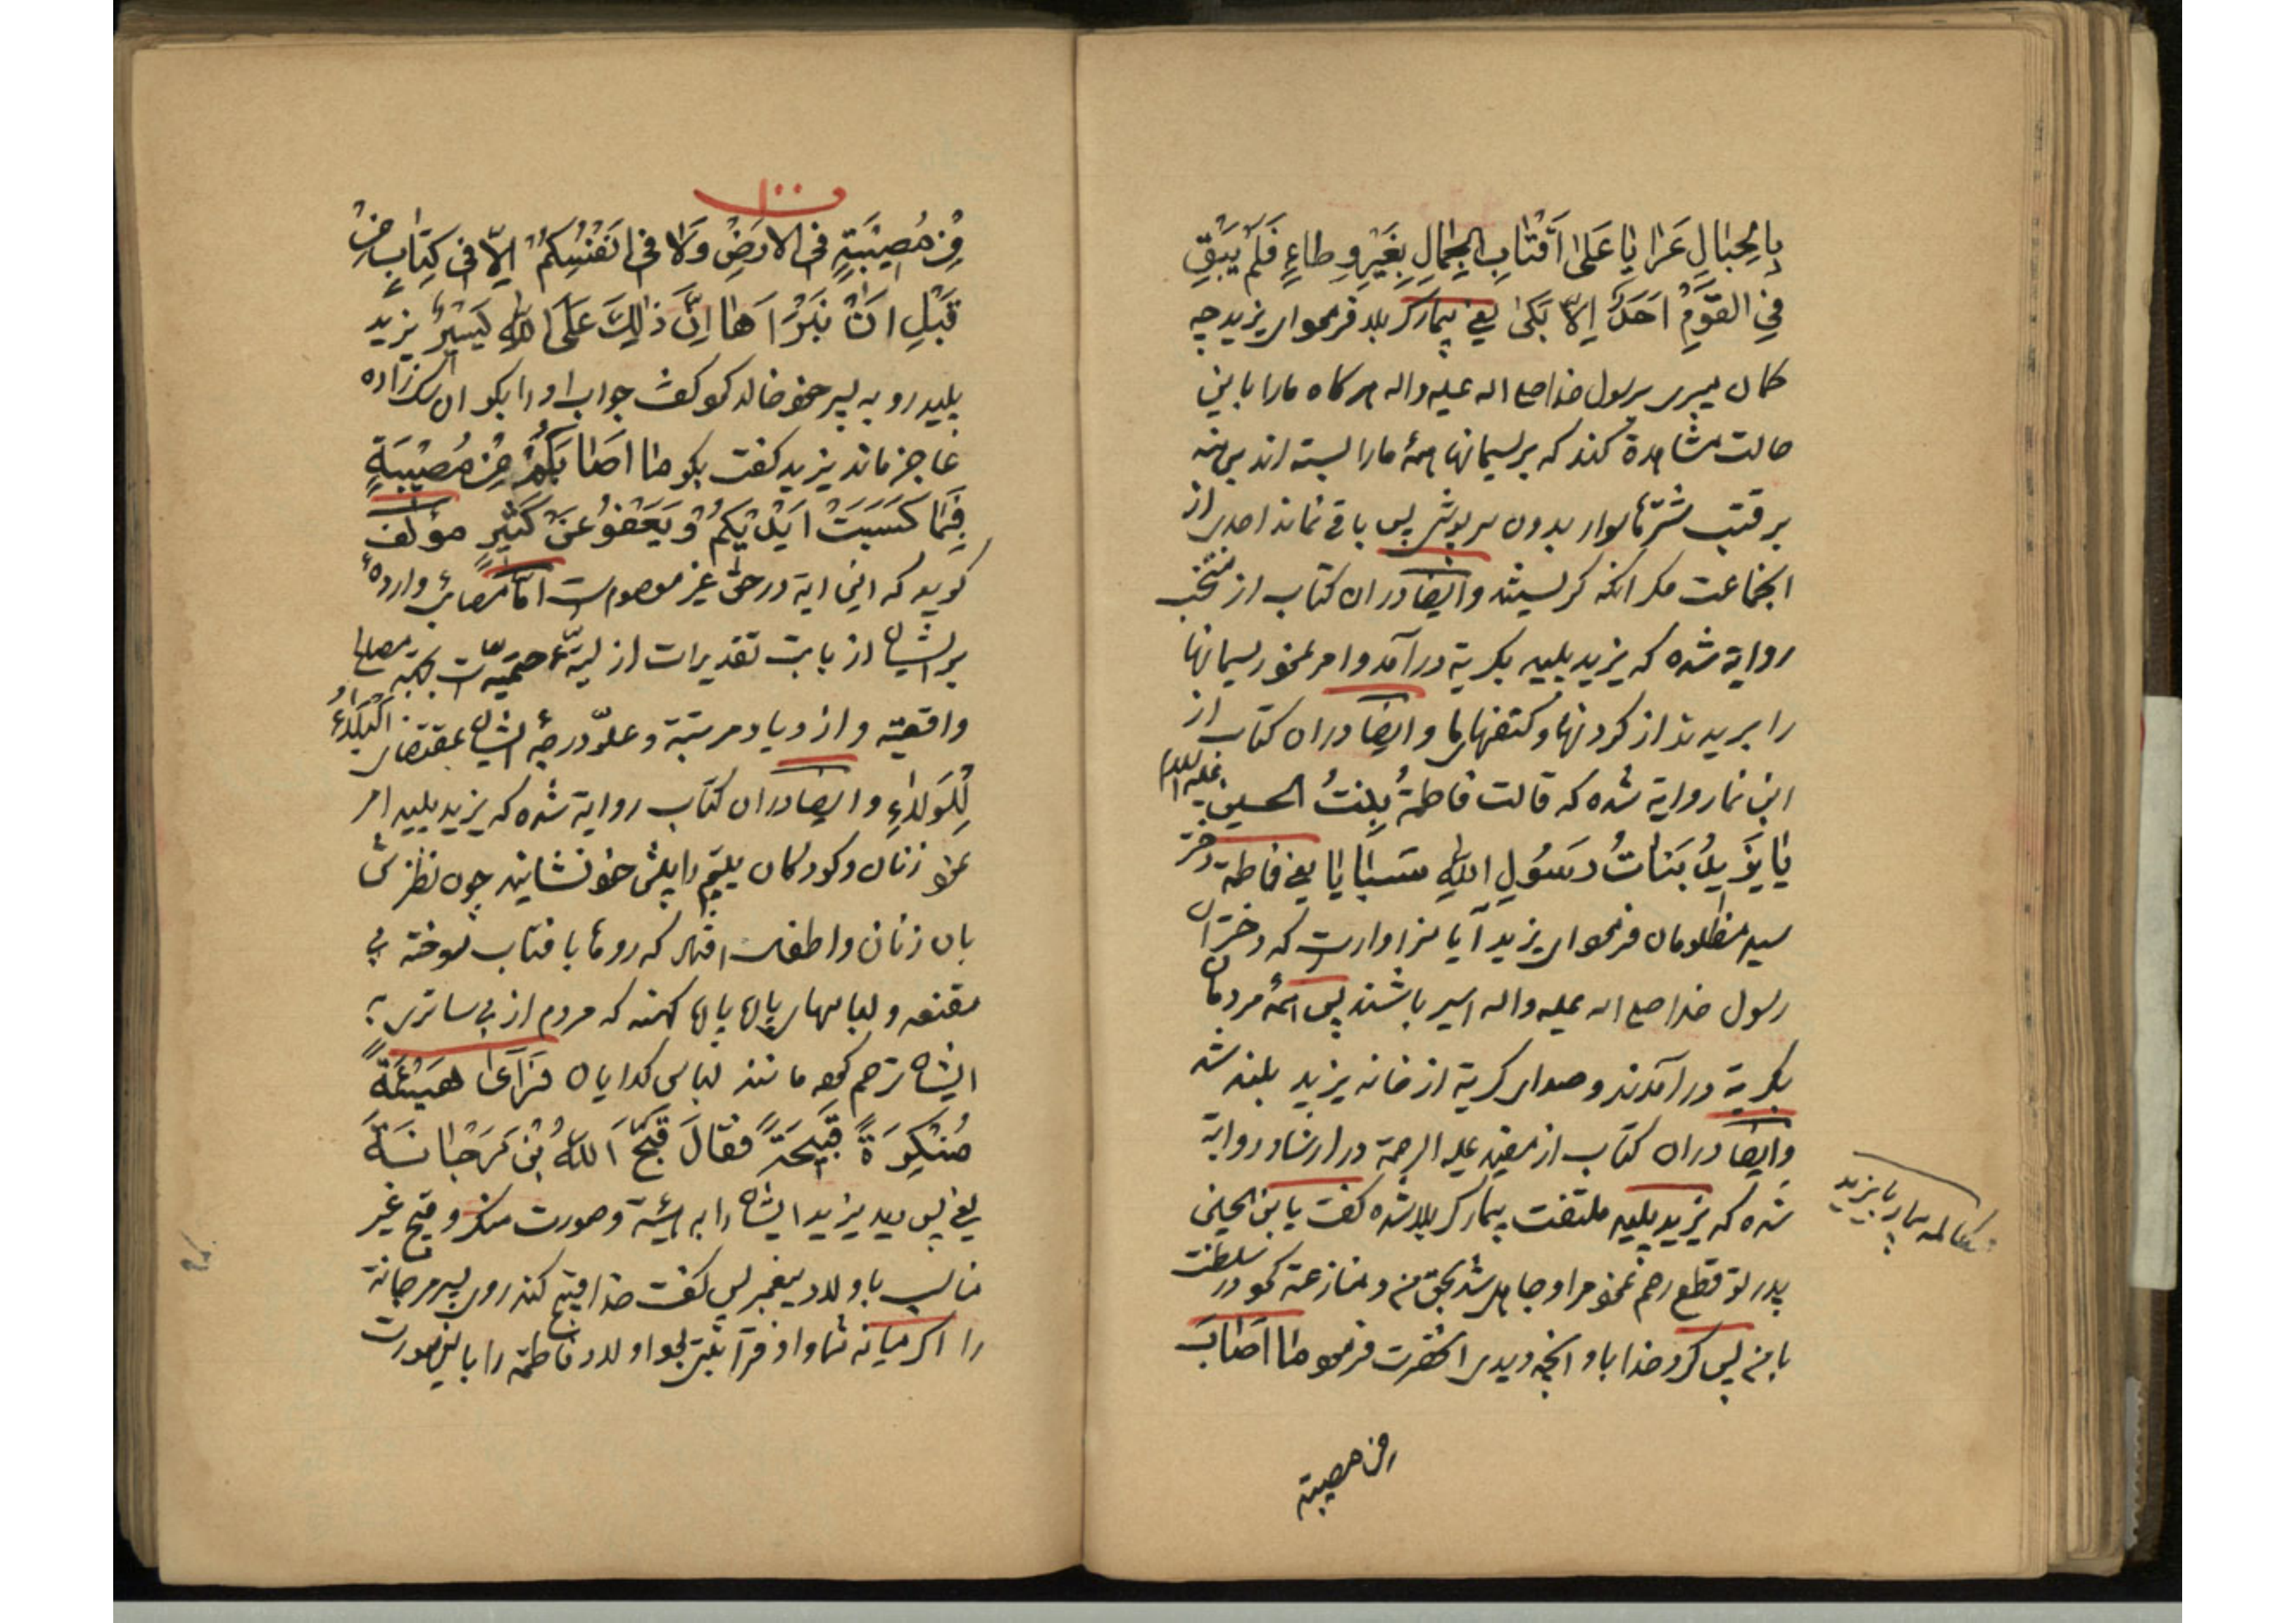 بِالحِبٰالِ عَرٰايٰا عَلىٰ اَقْتٰابِ الجِمٰالِ بِغَيْرِ وِطٰاءٍ فَلَمْ يَبْقِ
فِي القَوْمِ اَحَدٌ اِلاّ بَكىٰ یعنی بیمار کربلا فرمود ای یزید چه
کمان میبری برسول خدا صلع اله علیه واله هر کاه ما را باین
حالت مشاهدة کند که بریسمانها همهٔ ما را بسته اند برهنه
بر قتب شترها سوار بدون سرپوش پس باقی نماند احدی از
انجماعت مکر انکه کریستند وایضا در ان کتاب از منتخب
روایة شده که یزید پلید بکریة درآمد و امر نمود ریسمانها
را بریدند از کردنها و کتفهای ما وایضا در ان کتاب از
ابن نما روایة شده که قالت فاطمةُ بِنتُ الحسین علیه السلام
یٰا یَزیدُ بَنٰاتُ رَسُولِ اللهِ سَبٰایٰا یعنی فاطمة دختر
سید مظلومان فرمود ای یزید آیا سزاوارست که دختران
رسول خدا صلع اله علیه واله اسیر باشند پس همهٔ مردمان
بکریة درآمدند و صدای کریة از خانه یزید بلند شد
وایضا در ان کتاب از مفید علیه الرحمة در ارشاد روایة
شده که یزید پلید ملتفت بیمار کربلا شده کفت یابن الحسین
پدر تو قطع رحم نمود مرا و جاهل شد بحق من و منازعة نمود در سلطنت
با من پس کرد خدا با و انچه دیدی انحضرت فرمود مٰا اَصٰابَ
من مصیبة
مکالمه بیمار با یزید
مِنْ مُصیٖبَةٍ فی الاَرْضِ وَلاٰ فی اَنْفُسِکُمْ اِلاّ فی کِتٰابٍ مِنْ
قَبْلِ اَنْ نَبْرَاَهٰا اِنَّ ذٰلِكَ عَلَی اللهِ یَسیٖرٌ یزید
پلید رو به پسر خود خالد نمود کفت جواب او را بکو ان
عاجز ماند یزید کفت بکو مٰا اَصٰابَکُمْ مِنْ مُصیٖبَةٍ
فَبِمٰا کَسَبَتْ اَیْدیٖکُمْ وَ یَعْفُو عَنْ کَثیٖرٍ مؤلف
کوید که این ایة در حق غیر معصوم است امّا مصائب واردهٔ
بر ایشان از بابت تقدیرات ازلیّهٔ حتمیّه است بجهة مصالح
واقعیّه و ازدیاد مرتبة و علوّ درجهٔ ایشان بمقتضای اَلْبَلاٰءُ
لِلْوَلاٰءِ وایضا در ان کتاب روایة شده که یزید پلید امر
نمود زنان و کودکان یتیم را پیش خود نشانید چون نظرش
بان زنان و اطفال افتاد که روها بافتاب سوخته بی
مقنعه و لباسهای پاره پاره کهنه که مردم از بی ساتری
ایشان ترحم نموده مانند لباس کدایان فَرَآىٰ هَیْئَةً
مُنْکِرَةً قَبیٖحَةً فَقالَ قَبَّحَ اَللهُ بْنَ مَرْجٰانَةَ
یعنی پس دید یزید ایشان را به هیئة و صورت منکر و قبیح غیر
مناسب باولاد پیغمبر پس کفت خدا قبیح کند روی پسر مرجانة
را اکر میانه شما و او قرابتی بود اولاد فاطمة را باین صورت